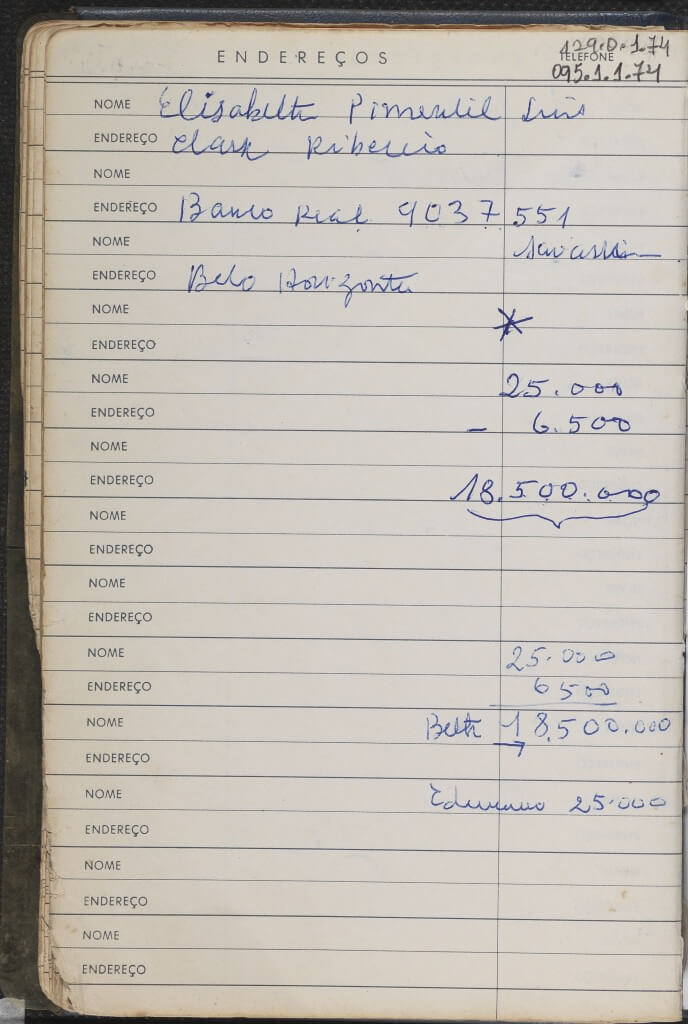 ENDEREÇOS
429.0.1.74
TELEFONE
095.1.1.74
NOME Elisabeth Pimentil Luis
ENDEREÇO Clark Ribeiro
NOME
ENDEREÇO Banco Real 9037 551
NOME Savassi
ENDEREÇO Belo Horizonte
NOME
ENDEREÇO
NOME 25.000
ENDEREÇO - 6.500
NOME
ENDEREÇO 18.500.000
NOME
ENDEREÇO
NOME
ENDEREÇO
NOME 25.000
ENDEREÇO 6500
NOME Beth 18.500.000
ENDEREÇO
NOME 25.000
ENDEREÇO
NOME
ENDEREÇO
NOME
ENDEREÇO